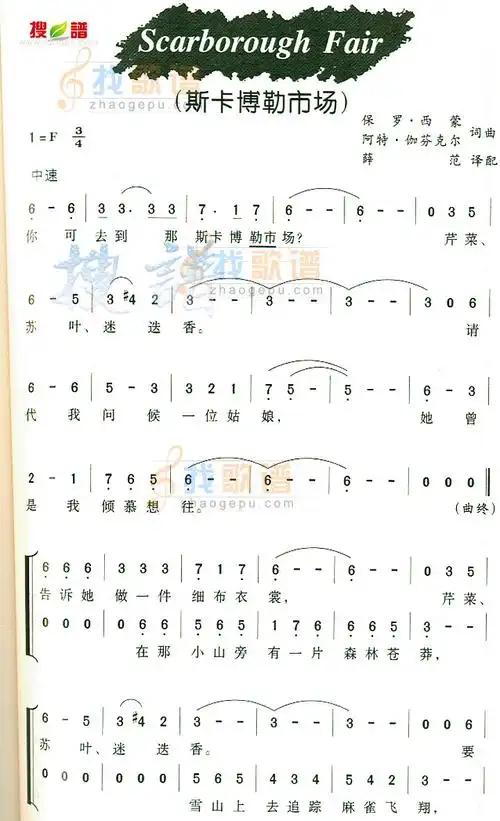 搜谱
Scarborough Fair
找歌谱
zhaogepu.com
(斯卡博勒市场)
保罗·西蒙
阿特·伽芬克尔 词曲
薛范 译配
1=F 3/4
中速
6 - 6 | 3 3. 3 3 | 7. 1 7 | 6 - - | 6 - - | 0 3 5 |
你可去到那斯卡博勒市场? 芹菜、
搜谱 找歌谱
zhaogepu.com
6 - 5 | 3 #4 2 | 3 - - | 3 - - | 3 - - | 3 0 6 |
苏叶、迷迭香。 请
6 - 6 | 5 - 3 | 3 2 1 | 7 5 - | 5 - - | 6 - 3 |
代我问候一位姑娘, 她曾
找歌谱
zhaogepu.com
2 - 1 | 7 6 5 | 6 - - | 6 - - | 6 - - | 0 0 0 ‖
是我倾慕想往。 (曲终)
6 6 6 | 3 3 3 | 7 1 7 | 6 - - | 6 - - | 0 3 5 |
告诉她做一件细布衣裳, 芹菜、
0 0 0 | 0 6 6 | 5 6 5 | 1 7 6 | 6 6 6 | 5 6 5 |
在那小山旁有一片森林苍莽,
6 - 5 | 3 #4 2 | 3 - - | 3 - - | 3 - - | 0 0 6 |
苏叶、迷迭香。 要
0 0 0 | 0 0 0 | 5 6 5 | 4 3 4 | 5 4 2 | 3 - - |
雪山上去追踪麻雀飞翔,